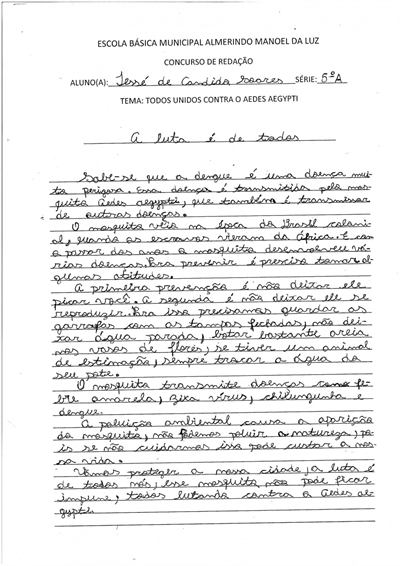 ESCOLA BÁSICA MUNICIPAL ALMERINDO MANOEL DA LUZ
CONCURSO DE REDAÇÃO
ALUNO(A): Jessé de Candida Soares SÉRIE: 5ºA
TEMA: TODOS UNIDOS CONTRA O AEDES AEGYPTI
A luta é de todos
Sabe-se que a dengue é uma doença mui-
ta perigosa. Essa doença é transmitida pelo mos-
quito Aedes aegypti, que também é transmissor
de outras doenças.
O mosquito veio na época do Brasil coloni-
al, quando os escravos vieram da África. E com
o passar dos anos o mosquito desenvolveu vá-
rias doenças. Pra prevenir é preciso tomar al-
gumas atitudes.
A primeira prevenção é não deixar ele
picar você. A segunda é não deixar ele se
reproduzir. Pra isso precisamos guardar as
garrafas com as tampas fechadas, não dei-
xar água parada, botar bastante areia
nos vasos de flores, se tiver um animal
de estimação, sempre trocar a água do
seu pote.
O mosquito transmite doenças como fe-
bre amarela, zika vírus, chikungunha e
dengue.
A poluição ambiental causa a aparição
do mosquito, não podemos poluir a natureza, po-
is se não cuidarmos isso pode custar a nos-
sa vida.
Vamos proteger a nossa cidade, a luta é
de todos nós, esse mosquito não pode ficar
impune, todos lutando contra o Aedes ae-
gypti.